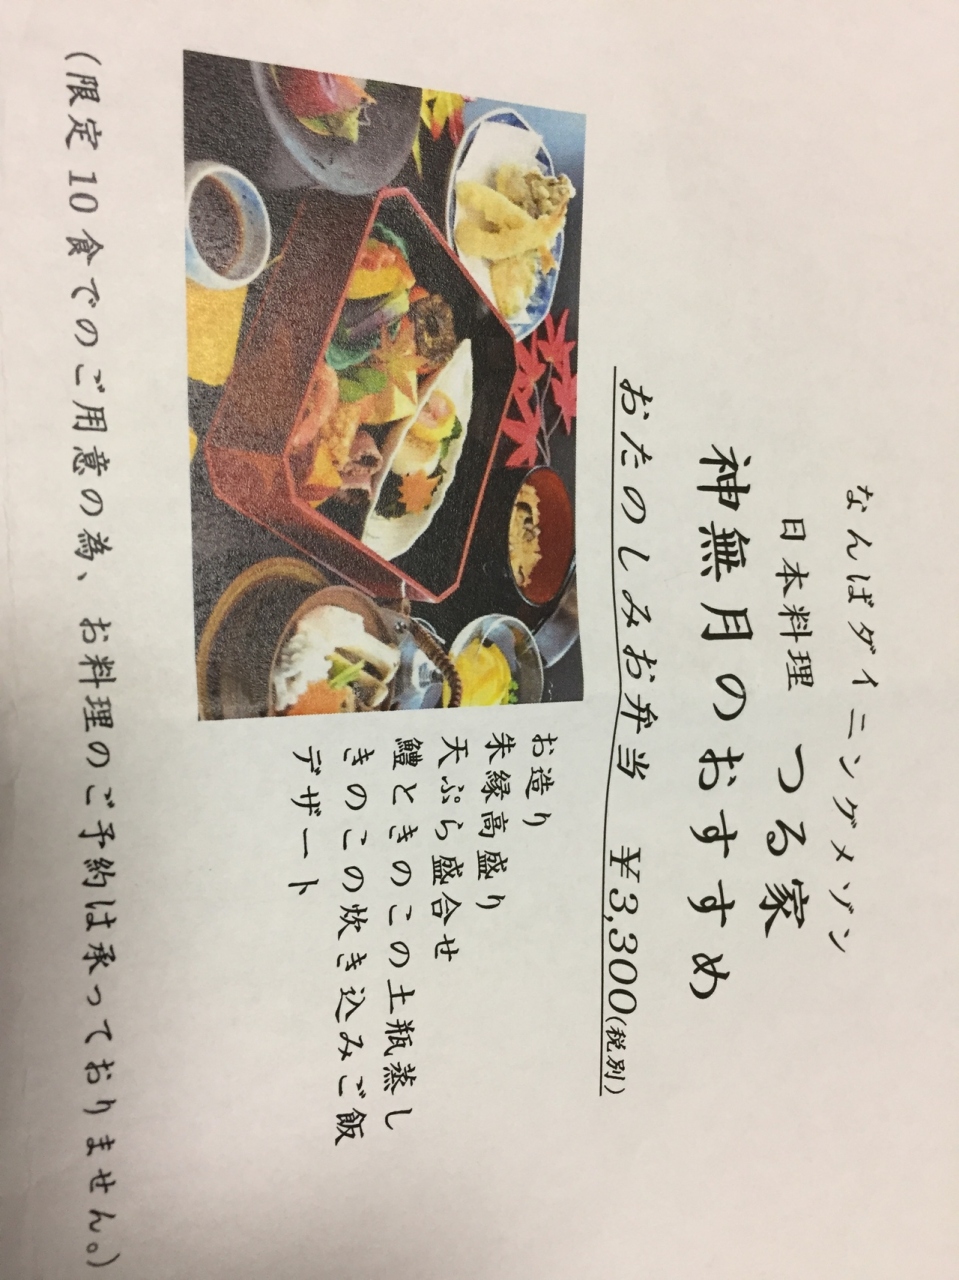 なんばダイニングメゾン
日本料理 つる家
神無月のおすすめ
おたのしみお弁当 ¥3,300(税別)
お造り
朱縁高盛り
天ぷら盛合せ
鱧ときのこの土瓶蒸し
きのこの炊き込みご飯
デザート
(限定10食でのご用意の為、お料理のご予約は承っておりません。)